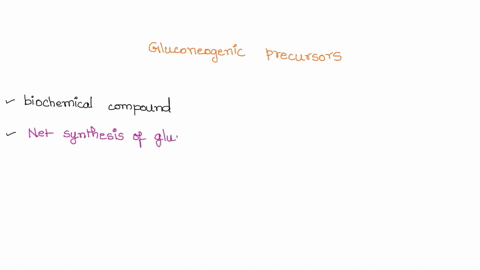 Gluconeogenic precursors
✓ biochemical compound
✓ Net synthesis of glu